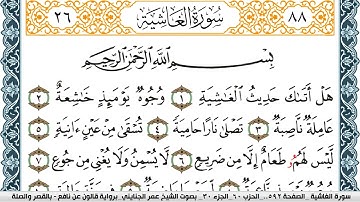 ٨٨ سُورَةُ الغَاشِيَةِ ٢٦
بِسْمِ اللَّهِ الرَّحْمَٰنِ الرَّحِيمِ
هَلْ أَتَىٰكَ حَدِيثُ الْغَٰشِيَةِ ١ وُجُوهٌ يَوْمَئِذٍ خَٰشِعَةٌ ٢
عَامِلَةٌ نَّاصِبَةٌ ٣ تَصْلَىٰ نَارًا حَامِيَةً ٤ تُسْقَىٰ مِنْ عَيْنٍ ءَانِيَةٍ ٥
لَّيْسَ لَهُمْ طَعَامٌ إِلَّا مِن ضَرِيعٍ ٦ لَّا يُسْمِنُ وَلَا يُغْنِي مِن جُوعٍ ٧
سورة الغاشية ـ الصفحة ٥٩٢ ـ الحزب ٦٠ ـ الجزء ٣٠ ـ بصوت الشيخ عمر الجنايني برواية قالون عن نافع - بالقصر والصلة